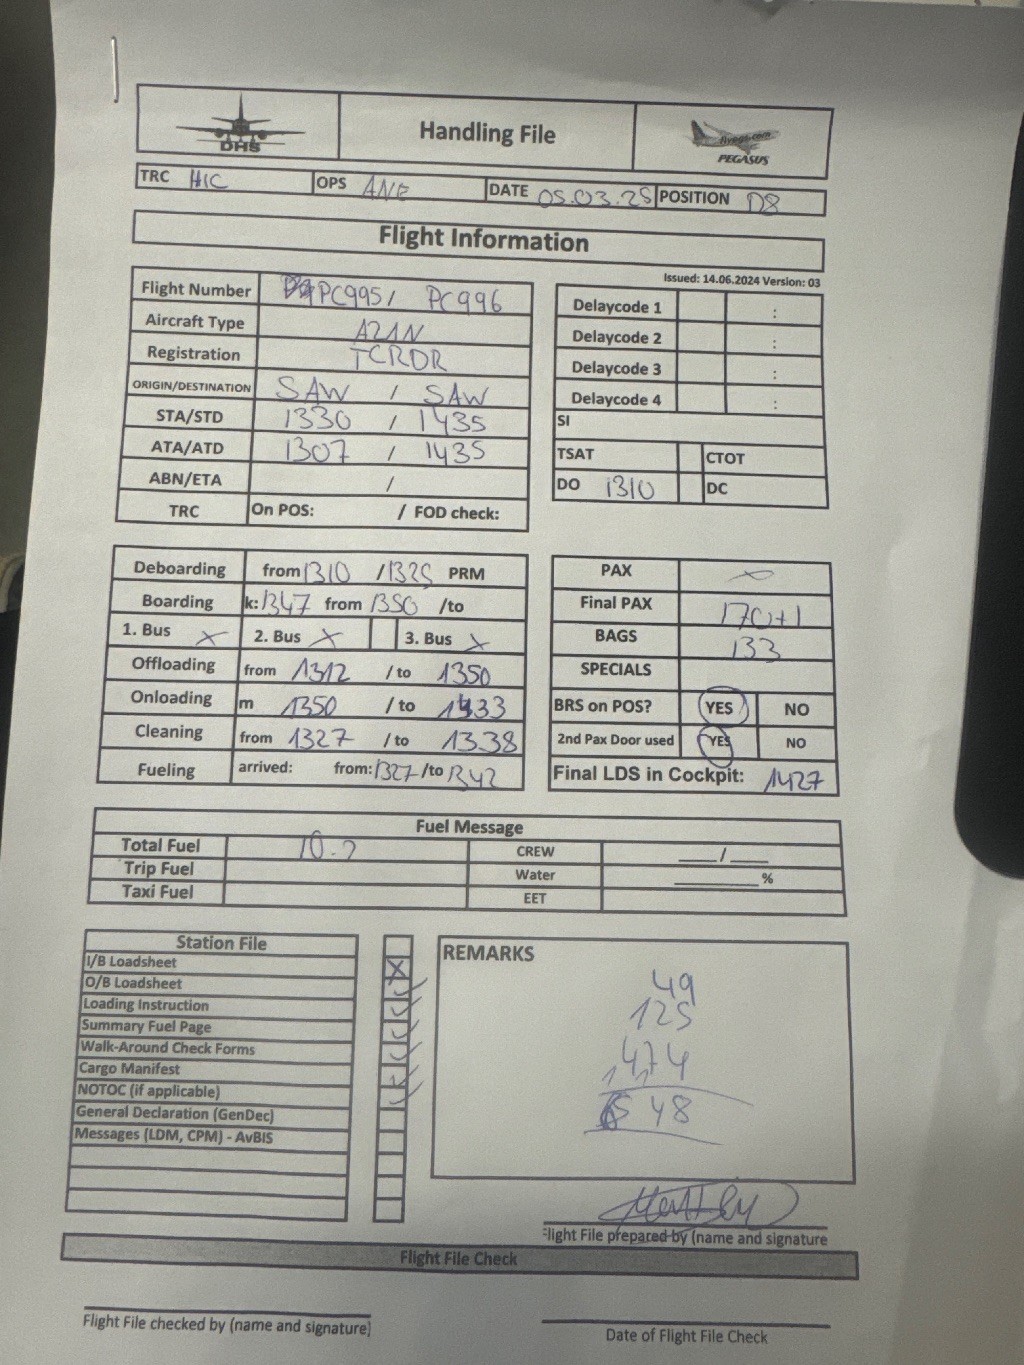 DHS
Handling File
flypgs.com
PEGASUS
TRC HIC OPS ANE DATE 05.03.25 POSITION D8
Flight Information
Issued: 14.06.2024 Version: 03
Flight Number PC995/ PC996
Aircraft Type A21N
Registration TCRDR
ORIGIN/DESTINATION SAW / SAW
STA/STD 1330 / 1435
ATA/ATD 1307 / 1435
ABN/ETA /
TRC On POS: / FOD check:
Delaycode 1 :
Delaycode 2 :
Delaycode 3 :
Delaycode 4 :
SI
TSAT CTOT
DO 1310 DC
Deboarding from 1310 / 1325 PRM
Boarding k: 1347 from 1350 /to
1. Bus X 2. Bus X 3. Bus X
Offloading from 1312 / to 1350
Onloading m 1350 / to 1433
Cleaning from 1327 / to 1338
Fueling arrived: from: 1327 /to 1342
PAX
Final PAX 170+1
BAGS 133
SPECIALS
BRS on POS? YES NO
2nd Pax Door used YES NO
Final LDS in Cockpit: 1427
Fuel Message
Total Fuel CREW __/__
Trip Fuel Water ____%
Taxi Fuel EET
Station File
I/B Loadsheet X
O/B Loadsheet ✓
Loading Instruction ✓
Summary Fuel Page ✓
Walk-Around Check Forms ✓
Cargo Manifest ✓
NOTOC (if applicable) ✓
General Declaration (GenDec)
Messages (LDM, CPM) - AvBIS
REMARKS
49
125
474
648
Flight File prepared by (name and signature
Flight File Check
Flight File checked by (name and signature)
Date of Flight File Check